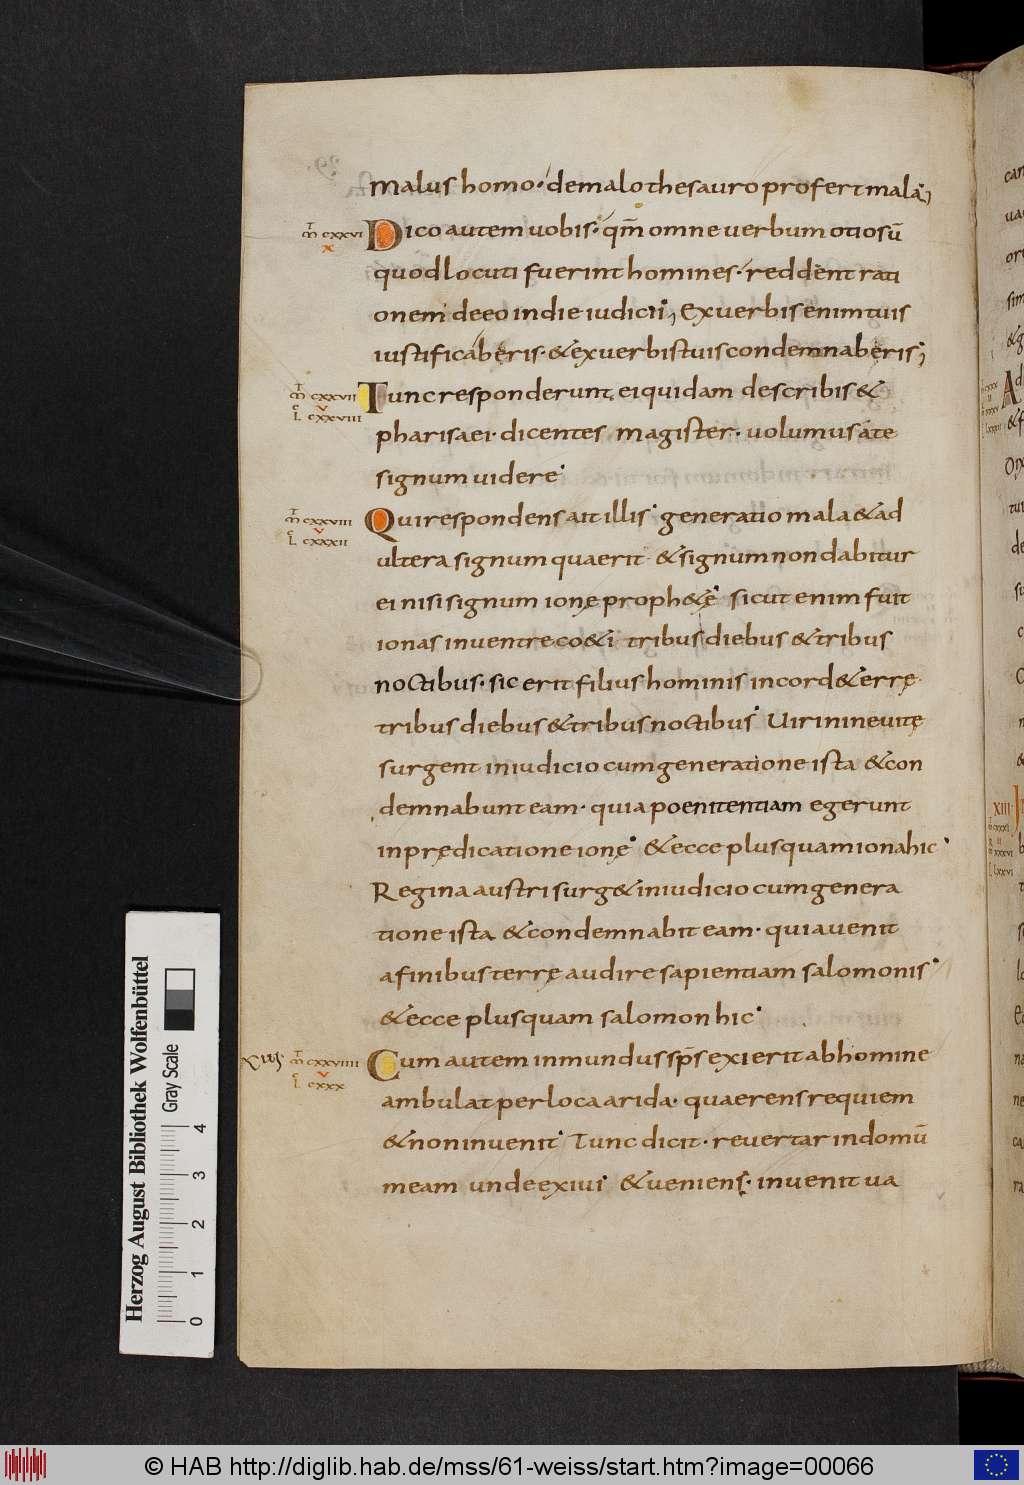 malus homo· demalo thesauro profert malā;
Dico autem uobis· qm̄ omne uerbum otiosū
quod locuti fuerint homines· reddent rati
onem deeo indie iudicii; Ex uerbis enim tuis
iustificaberis· & ex uerbis tuis condemnaberis;
Tunc responderunt ei quidam describis &
pharisaei· dicentes magister· uolumus ate
signum uidere·
Qui respondens ait illis· generatio mala & ad
ultera signum quaerit & signum non dabitur
ei nisi signum ionę proph&ę· sicut enim fuit
ionas inuentre co&i tribus diebus & tribus
noctibus· sic erit filius hominis incorde & errę·
tribus diebus & tribus noctibus· Uiri nineuitę
surgent iniudicio cum generatione ista & con
demnabunt eam· quia poenitentiam egerunt
in prędicatione ionę· & ecce plus quam iona hic·
Regina austri surg& iniudicio cum genera
tione ista & condemnabit eam· quia uenit
afinibus terrę audire sapientiam salomonis·
& ecce plus quam salomon hic·
Cum autem inmundus sp̄s exierit abhomine
ambulat per loca arida· quaerens requiem
& non inuenit· Tunc dicit· reuertar indomū
meam unde exiui· & ueniens· inuenit ua
m̄ cxxvi
x
m̄ cxxvii
v
L cxxviii
m̄ cxxviii
v
L cxxxii
m̄ cxxviiii
v
L cxxx
XIII·
Herzog August Bibliothek Wolfenbüttel
Gray Scale
0 1 2 3 4
© HAB http://diglib.hab.de/mss/61-weiss/start.htm?image=00066